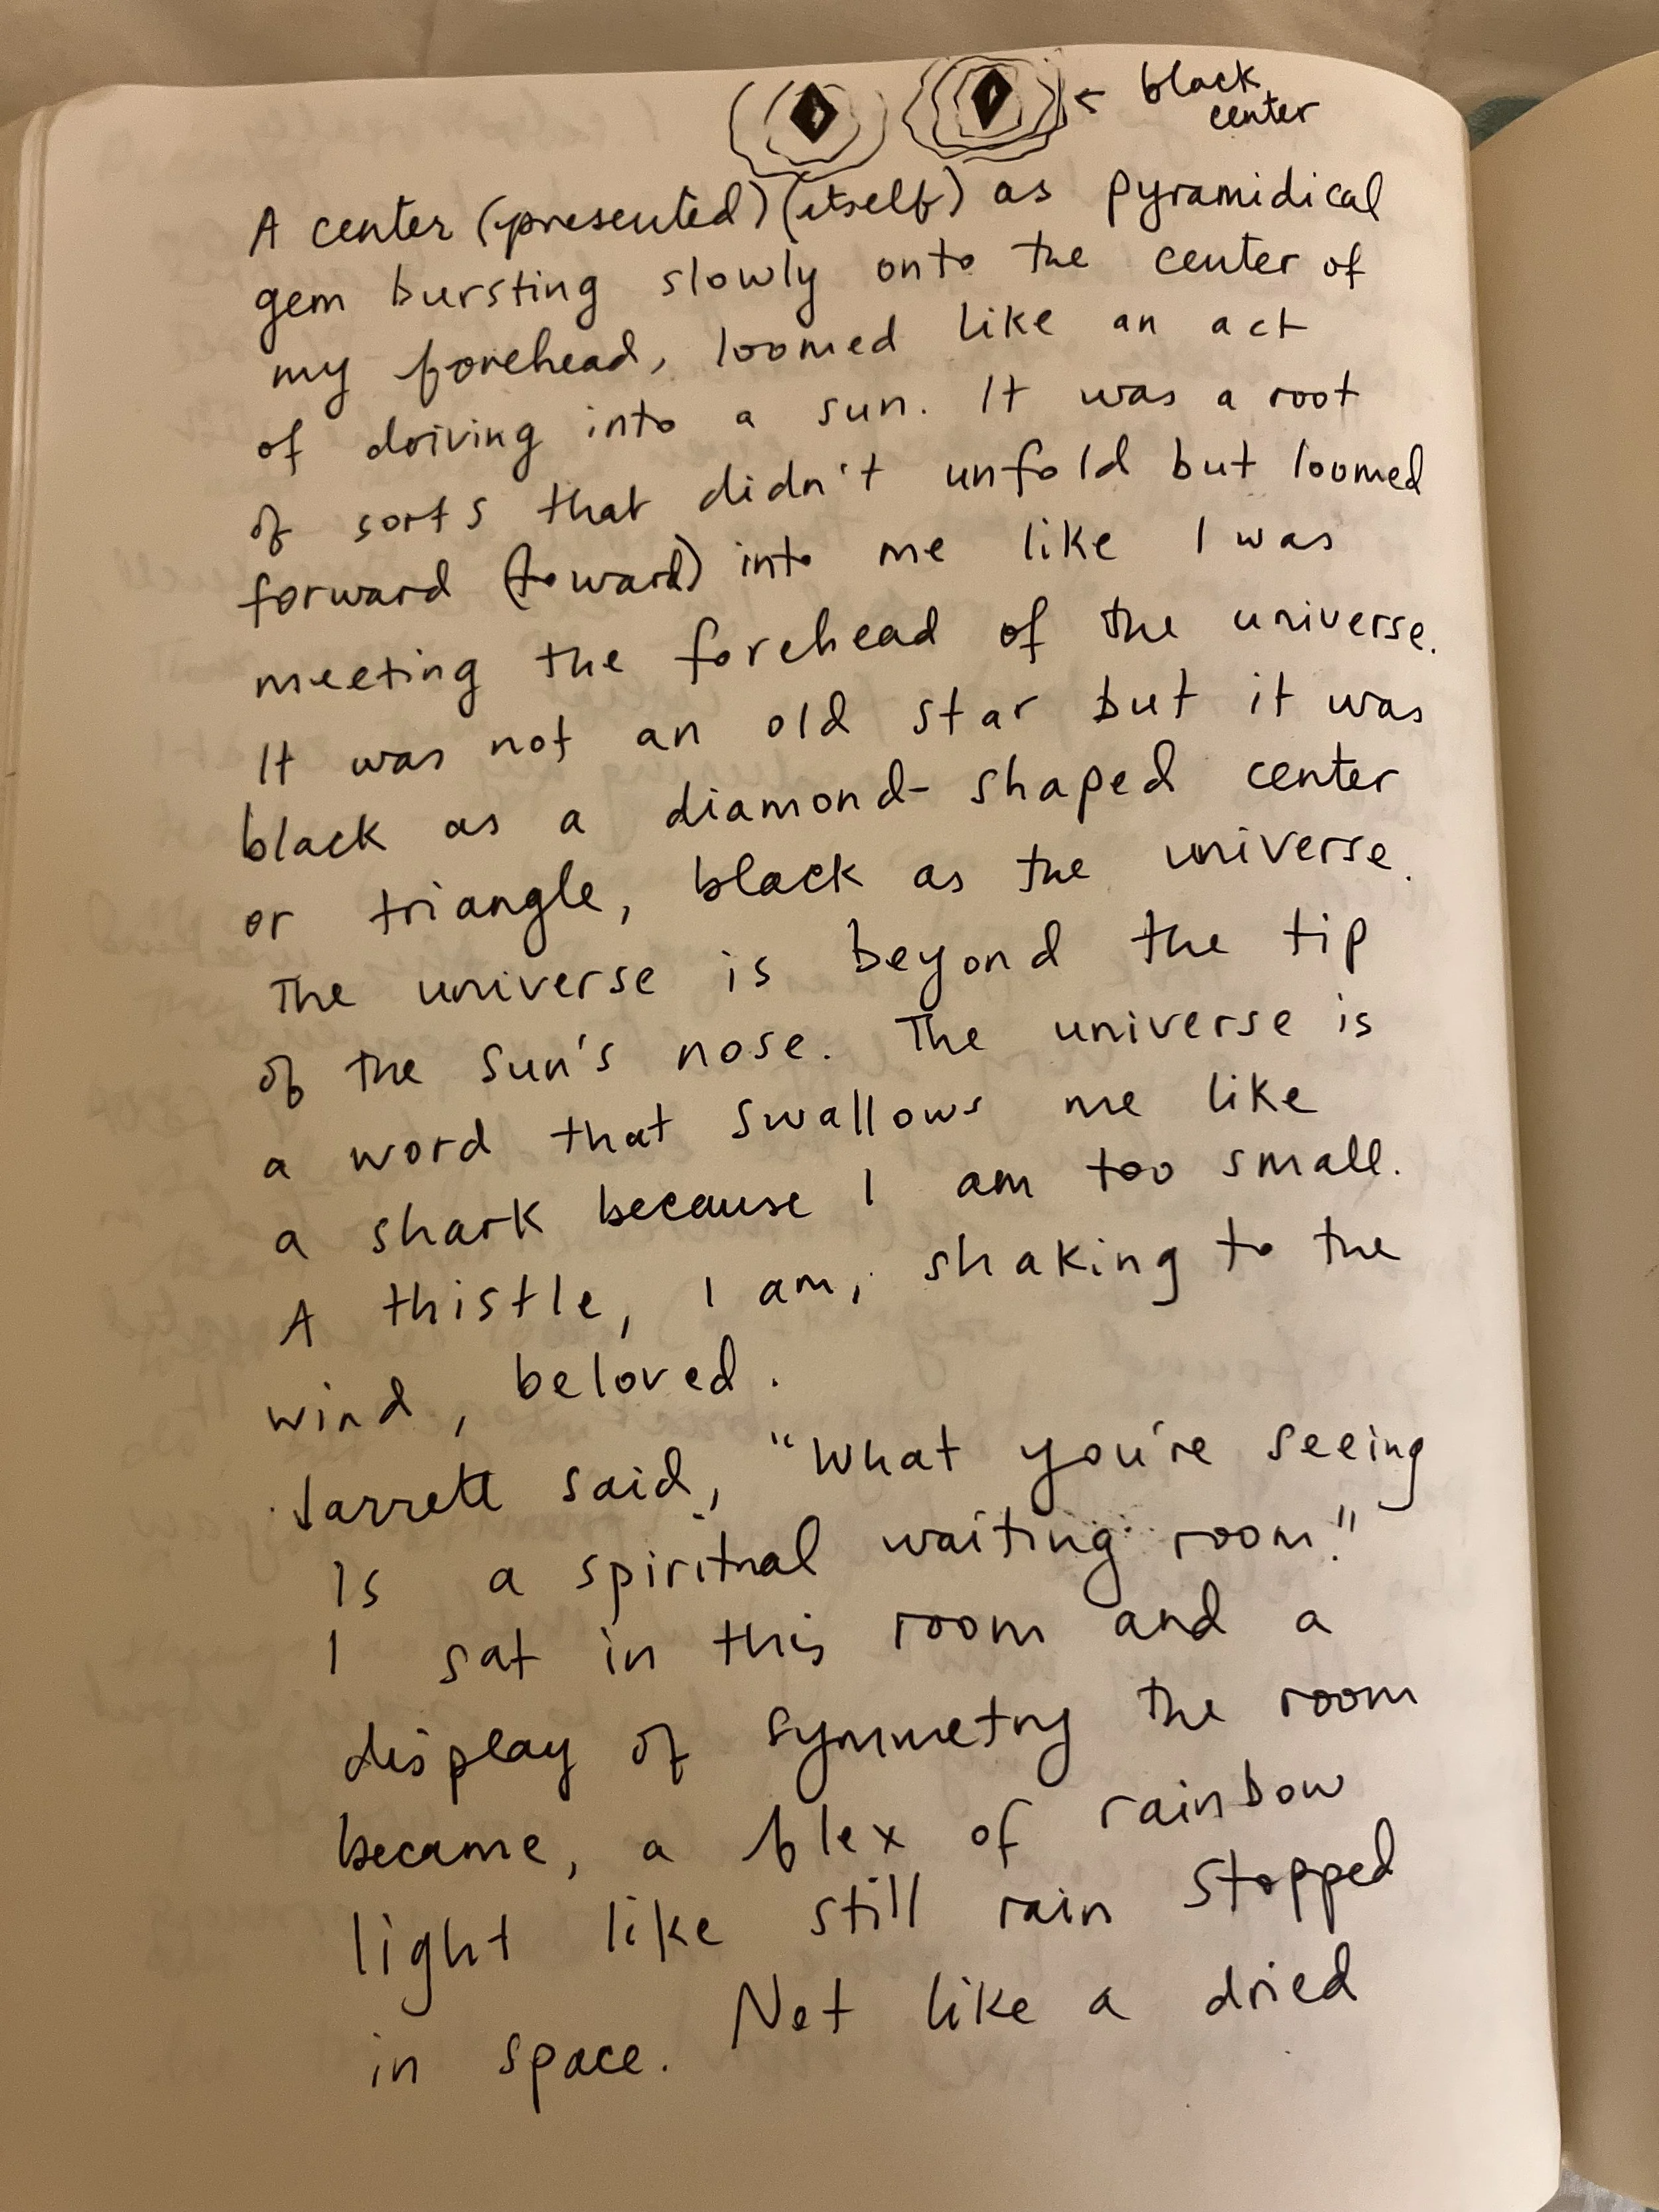 ← black
center
A center (presented) (itself) as pyramidical
gem bursting slowly onto the center of
my forehead, loomed like an act
of driving into a sun. It was a root
of sorts that didn't unfold but loomed
forward (toward) into me like I was
meeting the forehead of the universe.
It was not an old star but it was
black as a diamond-shaped center
or triangle, black as the universe.
The universe is beyond the tip
of the sun's nose. The universe is
a word that swallows me like
a shark because I am too small.
A thistle, I am, shaking to the
wind, beloved.
Jarrett said, "What you're seeing
Is a spiritual waiting room."
I sat in this room and a
display of symmetry the room
became, a flex of rainbow
light like still rain stopped
in space. Not like a dried